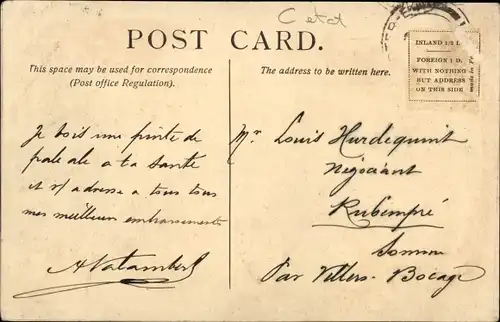 C et d
POST CARD.
This space may be used for correspondence
(Post office Regulation).
The address to be written here.
INLAND 1/2 D.
FOREIGN 1 D.
WITH NOTHING
BUT ADDRESS
ON THIS SIDE
Je bois une pinte de
pale ale a ta santé
et t'adresse a tous tous
mes meilleurs embrassements
Mr Louis Hurdequint
Négociant
Rubempré
Somme
Par Villers-Bocage